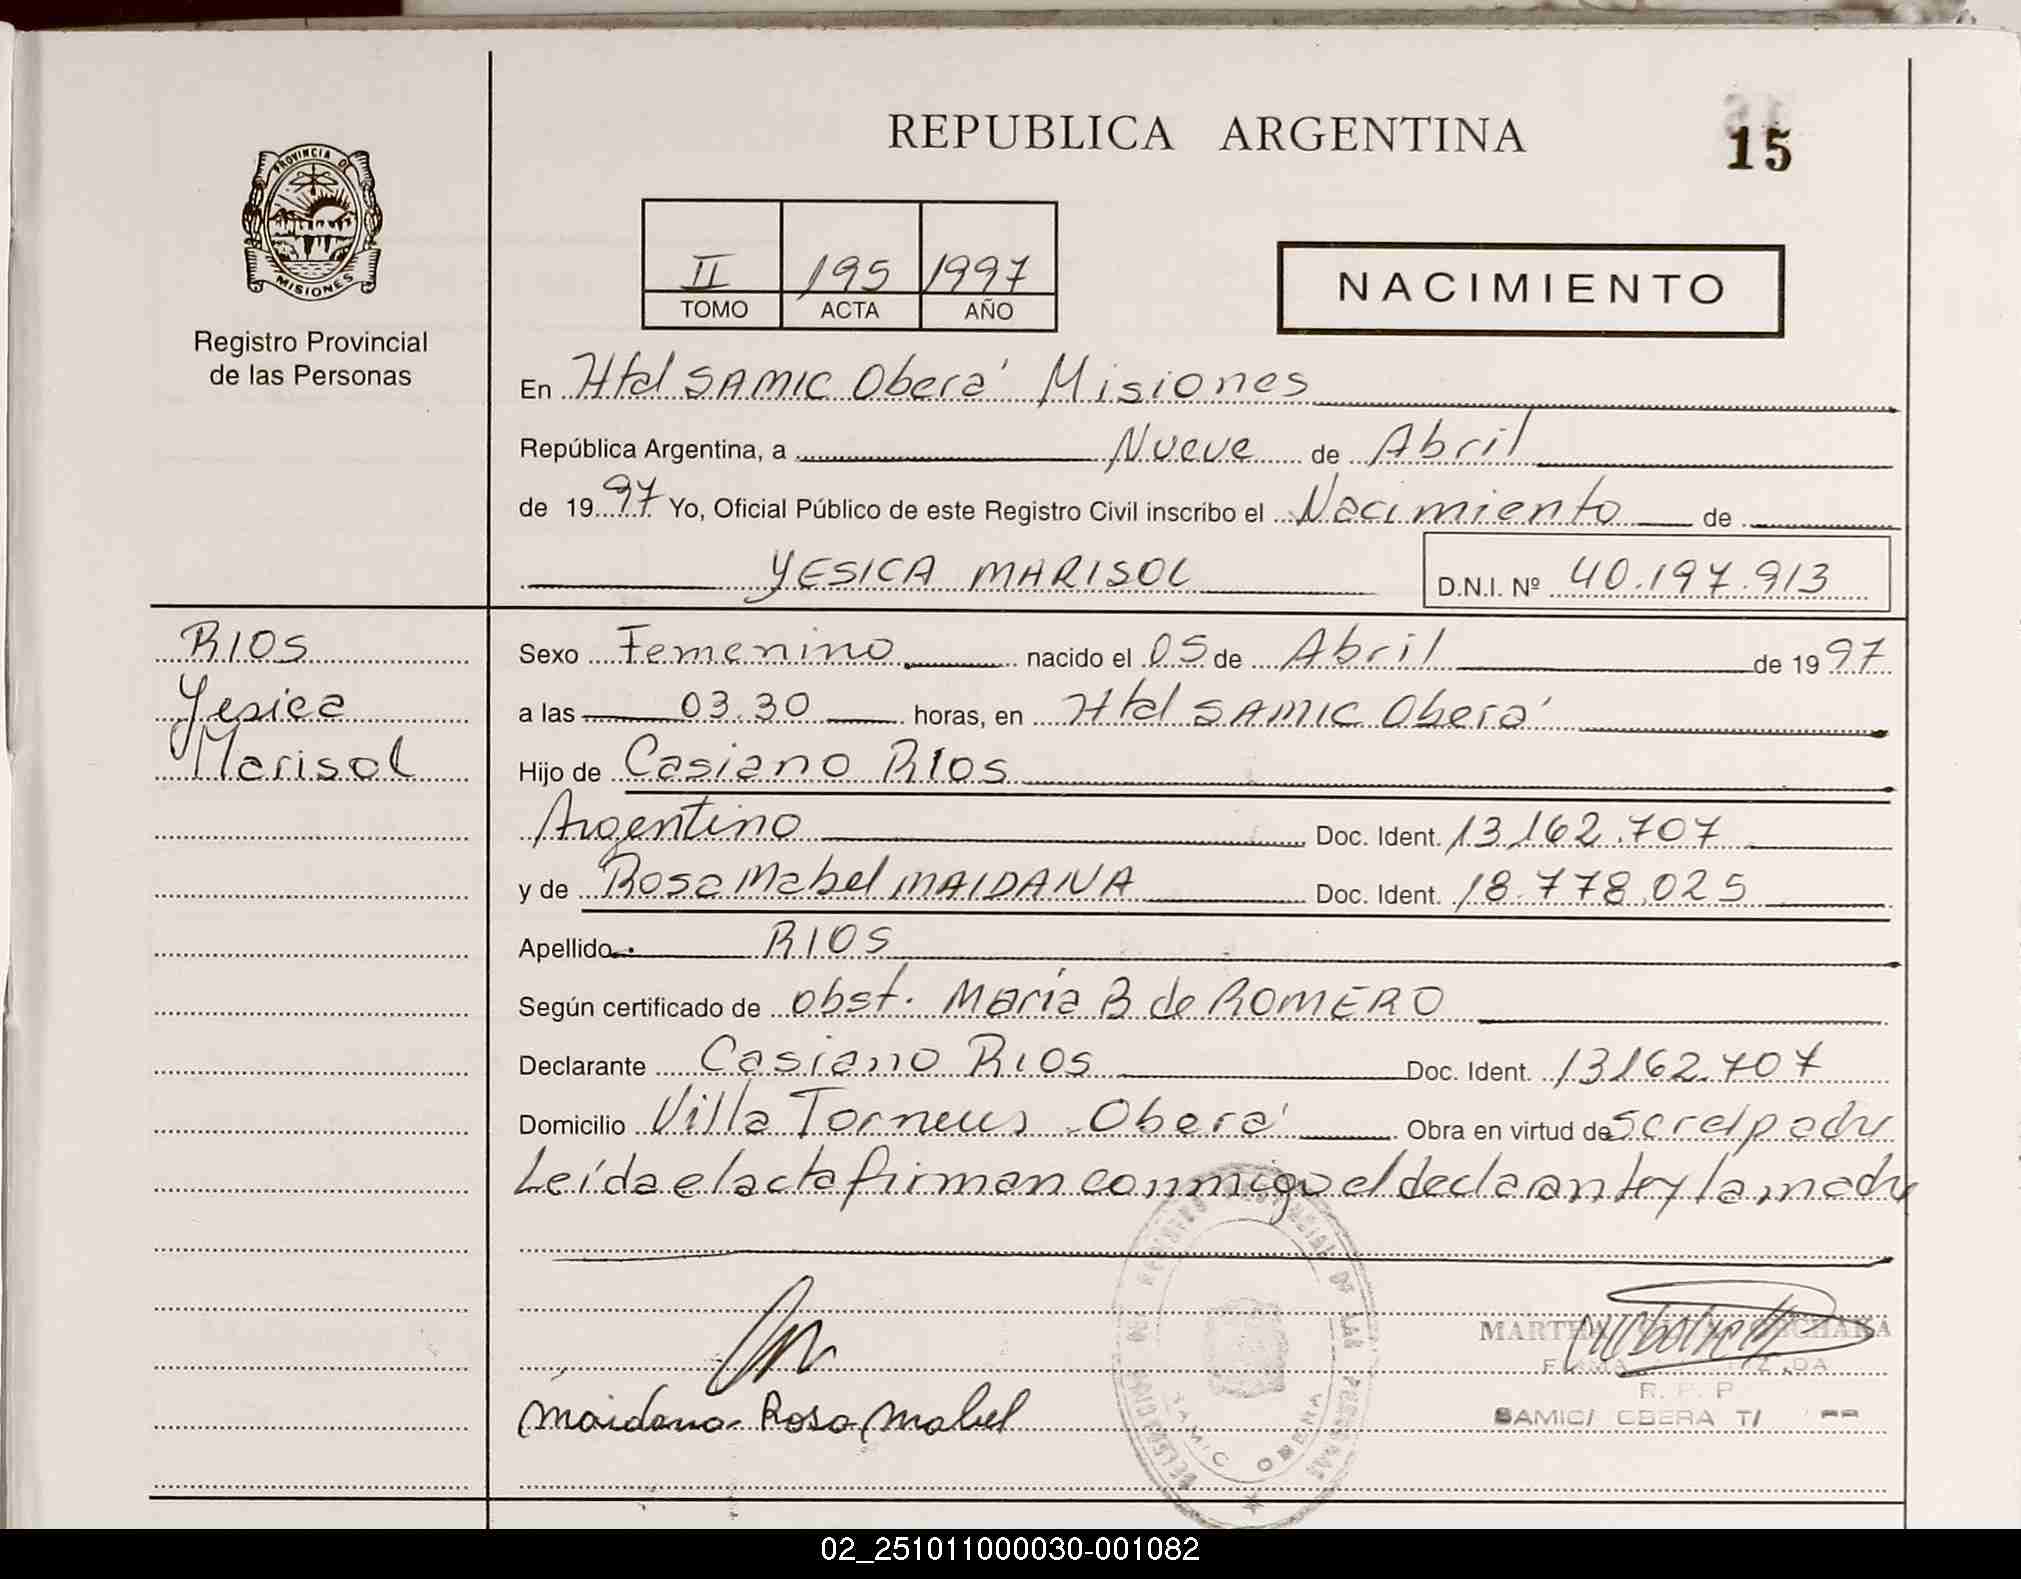 REPUBLICA ARGENTINA
15
PROVINCIA DE
MISIONES
Registro Provincial
de las Personas
II 195 1997
TOMO ACTA AÑO
NACIMIENTO
En Htal SAMIC Oberá Misiones
República Argentina, a Nueve de Abril
de 1997 Yo, Oficial Público de este Registro Civil inscribo el Nacimiento de
YESICA MARISOL D.N.I. Nº 40.197.913
RIOS
Yesica
Marisol
Sexo Femenino nacido el 05 de Abril de 1997
a las 03.30 horas, en Htal SAMIC Oberá
Hijo de Casiano RIOS
Argentino Doc. Ident. 13.162.707
y de Rosa Mabel MAIDANA Doc. Ident. 18.778.025
Apellido: RIOS
Según certificado de obst. María B de ROMERO
Declarante Casiano RIOS Doc. Ident. 13162.707
Domicilio Villa Oberá Obra en virtud de
Leída el acta firman conmigo el declarante y la madre
Maidana Rosa Mabel
R. P. P
SAMIC OBERA
02_251011000030-001082